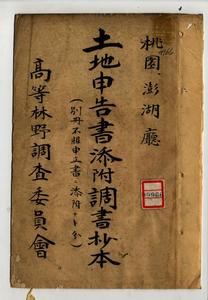 桃園、澎湖廳
土地申告書添附調書抄本
(別冊不服申立書ニ添附ナキ分)
高等林野調査委員會